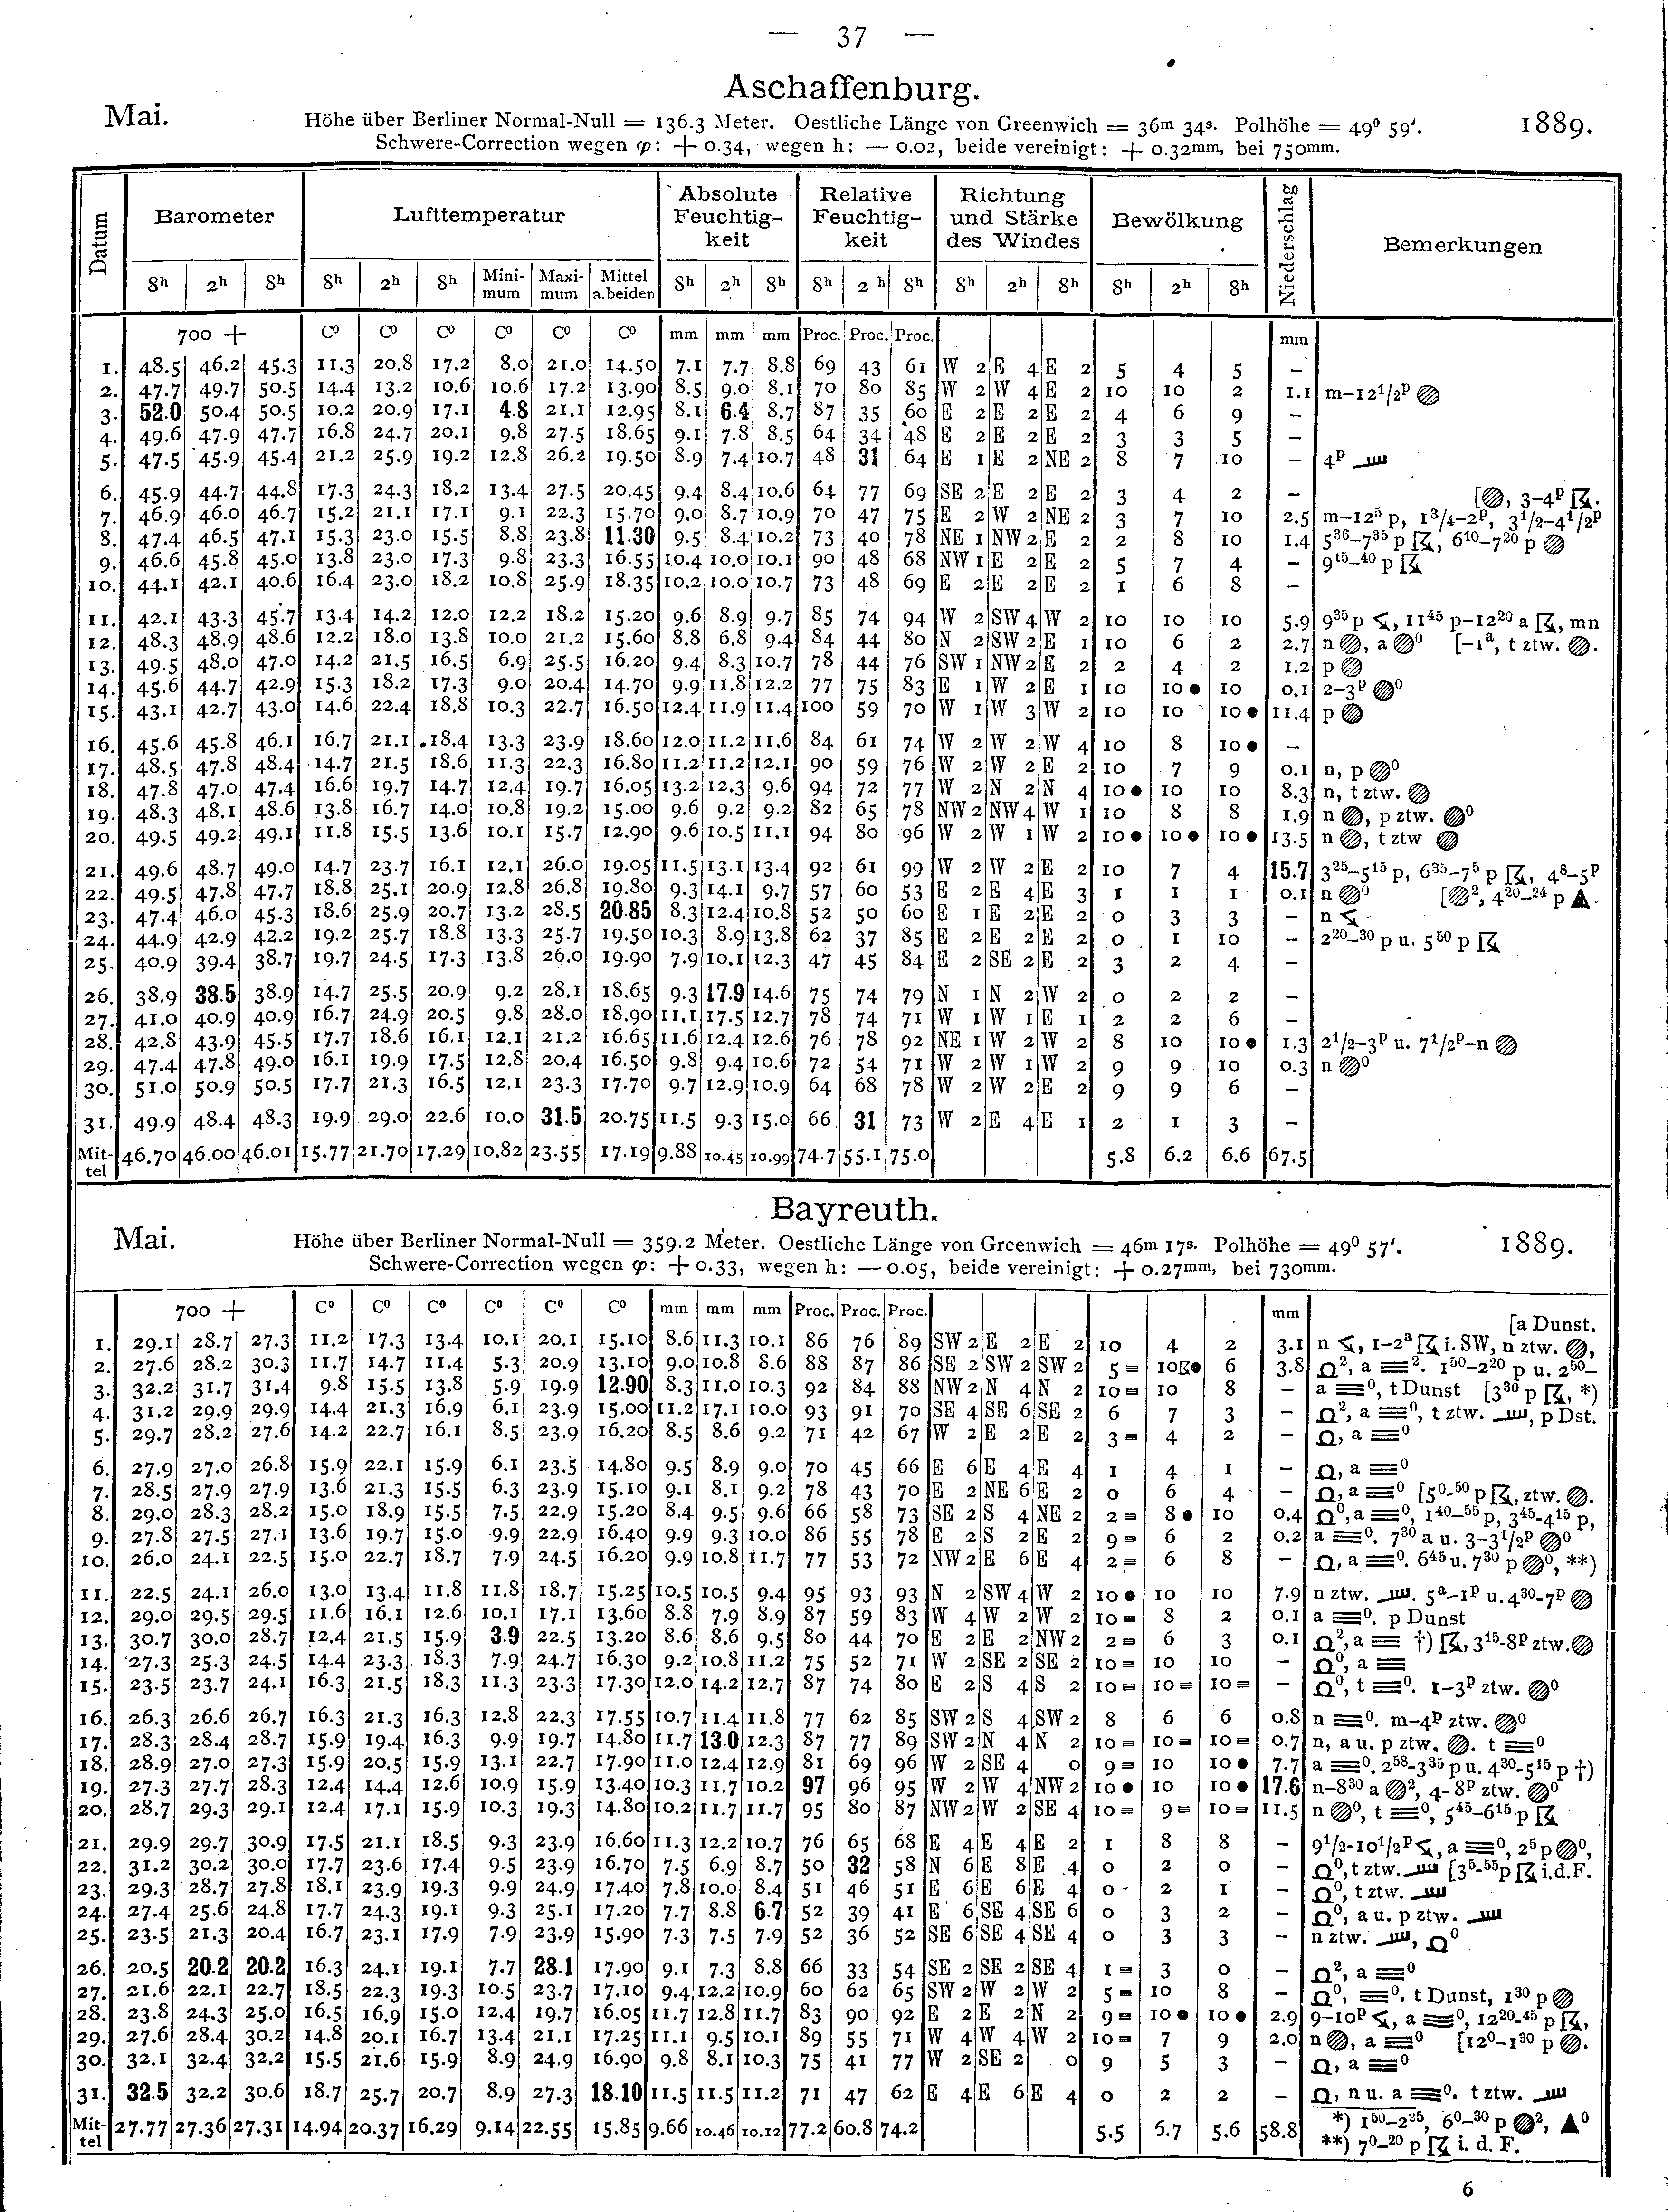 — 37 —
Aschaffenburg.
Mai. Höhe über Berliner Normal-Null = 136.3 Meter. Oestliche Länge von Greenwich = 36m 34s. Polhöhe = 49⁰ 59′. 1889.
Schwere-Correction wegen φ: + 0.34, wegen h: — 0.02, beide vereinigt: + 0.32mm, bei 750mm.
Datum Barometer Lufttemperatur Absolute Feuchtig-keit Relative Feuchtig-keit Richtung und Stärke des Windes Bewölkung Niederschlag Bemerkungen
8h 2h 8h 8h 2h 8h Mini-mum Maxi-mum Mittel a.beiden 8h 2h 8h 8h 2h 8h 8h 2h 8h 8h 2h 8h
700 + C⁰ C⁰ C⁰ C⁰ C⁰ C⁰ mm mm mm Proc. Proc. Proc. mm
1. 48.5 46.2 45.3 11.3 20.8 17.2 8.0 21.0 14.50 7.1 7.7 8.8 69 43 61 W 2 E 4 E 2 5 4 5 –
2. 47.7 49.7 50.5 14.4 13.2 10.6 10.6 17.2 13.90 8.5 9.0 8.1 70 80 85 W 2 W 4 E 2 10 10 2 1.1 m–12½p
3. 52.0 50.4 50.5 10.2 20.9 17.1 4.8 21.1 12.95 8.1 6.4 8.7 87 35 60 E 2 E 2 E 2 4 6 9 –
4. 49.6 47.9 47.7 16.8 24.7 20.1 9.8 27.5 18.65 9.1 7.8 8.5 64 34 48 E 2 E 2 E 2 3 3 5 –
5. 47.5 45.9 45.4 21.2 25.9 19.2 12.8 26.2 19.50 8.9 7.4 10.7 48 31 64 E 1 E 2 NE 2 8 7 10 – 4p
6. 45.9 44.7 44.8 17.3 24.3 18.2 13.4 27.5 20.45 9.4 8.4 10.6 64 77 69 SE 2 E 2 E 2 3 4 2 – [, 3–4p .
7. 46.9 46.0 46.7 15.2 21.1 17.1 9.1 22.3 15.70 9.0 8.7 10.9 70 47 75 E 2 W 2 NE 2 3 7 10 2.5 m–12⁵ p, 1¾–2p, 3½–4½p
8. 47.4 46.5 47.1 15.3 23.0 15.5 8.8 23.8 11.30 9.5 8.4 10.2 73 40 78 NE 1 NW 2 E 2 2 8 10 1.4 5³⁶–7³⁵ p , 6¹⁰–7²⁰ p
9. 46.6 45.8 45.0 13.8 23.0 17.3 9.8 23.3 16.55 10.4 10.0 10.1 90 48 68 NW 1 E 2 E 2 5 7 4 – 9¹⁵–⁴⁰ p
10. 44.1 42.1 40.6 16.4 23.0 18.2 10.8 25.9 18.35 10.2 10.0 10.7 73 48 69 E 2 E 2 E 2 1 6 8 –
11. 42.1 43.3 45.7 13.4 14.2 12.0 12.2 18.2 15.20 9.6 8.9 9.7 85 74 94 W 2 SW 4 W 2 10 10 10 5.9 9³⁵ p , 11⁴⁵ p–12²⁰ a , mn
12. 48.3 48.9 48.6 12.2 18.0 13.8 10.0 21.2 15.60 8.8 6.8 9.4 84 44 80 N 2 SW 2 E 1 10 6 2 2.7 n , a ⁰ [–1a, t ztw. .
13. 49.5 48.0 47.0 14.2 21.5 16.5 6.9 25.5 16.20 9.4 8.3 10.7 78 44 76 SW 1 NW 2 E 2 2 4 2 1.2 p
14. 45.6 44.7 42.9 15.3 18.2 17.3 9.0 20.4 14.70 9.9 11.8 12.2 77 75 83 E 1 W 2 E 1 10 10 ● 10 0.1 2–3p ⁰
15. 43.1 42.7 43.0 14.6 22.4 18.8 10.3 22.7 16.50 12.4 11.9 11.4 100 59 70 W 1 W 3 W 2 10 10 10 ● 11.4 p
16. 45.6 45.8 46.1 16.7 21.1 18.4 13.3 23.9 18.60 12.0 11.2 11.6 84 61 74 W 2 W 2 W 4 10 8 10 ● –
17. 48.5 47.8 48.4 14.7 21.5 18.6 11.3 22.3 16.80 11.2 11.2 12.1 90 59 76 W 2 W 2 E 2 10 7 9 0.1 n, p ⁰
18. 47.8 47.0 47.4 16.6 19.7 14.7 12.4 19.7 16.05 13.2 12.3 9.6 94 72 77 W 2 N 2 N 4 10 ● 10 10 8.3 n, t ztw.
19. 48.3 48.1 48.6 13.8 16.7 14.0 10.8 19.2 15.00 9.6 9.2 9.2 82 65 78 NW 2 NW 4 W 1 10 8 8 1.9 n , p ztw. ⁰
20. 49.5 49.2 49.1 11.8 15.5 13.6 10.1 15.7 12.90 9.6 10.5 11.1 94 80 96 W 2 W 1 W 2 10 ● 10 ● 10 ● 13.5 n , t ztw
21. 49.6 48.7 49.0 14.7 23.7 16.1 12.1 26.0 19.05 11.5 13.1 13.4 92 61 99 W 2 W 2 E 2 10 7 4 15.7 3²⁵–5¹⁵ p, 6³⁵–7⁵ p , 4⁸–5p
22. 49.5 47.8 47.7 18.8 25.1 20.9 12.8 26.8 19.80 9.3 14.1 9.7 57 60 53 E 2 E 4 E 3 1 1 1 0.1 n ⁰ [², 4²⁰–²⁴ p ▲.
23. 47.4 46.0 45.3 18.6 25.9 20.7 13.2 28.5 20.85 8.3 12.4 10.8 52 50 60 E 1 E 2 E 2 0 3 3 – n
24. 44.9 42.9 42.2 19.2 25.7 18.8 13.3 25.7 19.50 10.3 8.9 13.8 62 37 85 E 2 E 2 E 2 0 1 10 – 2²⁰–³⁰ p u. 5⁵⁰ p
25. 40.9 39.4 38.7 19.7 24.5 17.3 13.8 26.0 19.90 7.9 10.1 12.3 47 45 84 E 2 SE 2 E 2 3 2 4 –
26. 38.9 38.5 38.9 14.7 25.5 20.9 9.2 28.1 18.65 9.3 17.9 14.6 75 74 79 N 1 N 2 W 2 0 2 2 –
27. 41.0 40.9 40.9 16.7 24.9 20.5 9.8 28.0 18.90 11.1 17.5 12.7 78 74 71 W 1 W 1 E 1 2 2 6 –
28. 42.8 43.9 45.5 17.7 18.6 16.1 12.1 21.2 16.65 11.6 12.4 12.6 76 78 92 NE 1 W 2 W 2 8 10 10 ● 1.3 2½–3p u. 7½p–n
29. 47.4 47.8 49.0 16.1 19.9 17.5 12.8 20.4 16.50 9.8 9.4 10.6 72 54 71 W 2 W 1 W 2 9 9 10 0.3 n ⁰
30. 51.0 50.9 50.5 17.7 21.3 16.5 12.1 23.3 17.70 9.7 12.9 10.9 64 68 78 W 2 W 2 E 2 9 9 6 –
31. 49.9 48.4 48.3 19.9 29.0 22.6 10.0 31.5 20.75 11.5 9.3 15.0 66 31 73 W 2 E 4 E 1 2 1 3 –
Mit-tel 46.70 46.00 46.01 15.77 21.70 17.29 10.82 23.55 17.19 9.88 10.45 10.99 74.7 55.1 75.0 5.8 6.2 6.6 67.5
Bayreuth.
Mai. Höhe über Berliner Normal-Null = 359.2 Meter. Oestliche Länge von Greenwich = 46m 17s. Polhöhe = 49⁰ 57′. 1889.
Schwere-Correction wegen φ: + 0.33, wegen h: — 0.05, beide vereinigt: + 0.27mm, bei 730mm.
700 + C⁰ C⁰ C⁰ C⁰ C⁰ C⁰ mm mm mm Proc. Proc. Proc. mm [a Dunst.
1. 29.1 28.7 27.3 11.2 17.3 13.4 10.1 20.1 15.10 8.6 11.3 10.1 86 76 89 SW 2 E 2 E 2 10 4 2 3.1 n , 1–2a i. SW, n ztw. ,
2. 27.6 28.2 30.3 11.7 14.7 11.4 5.3 20.9 13.10 9.0 10.8 8.6 88 87 86 SE 2 SW 2 SW 2 5 = 10 ● 6 3.8 ², a ≡². 1⁵⁰–2²⁰ p u. 2⁵⁰–
3. 32.2 31.7 31.4 9.8 15.5 13.8 5.9 19.9 12.90 8.3 11.0 10.3 92 84 88 NW 2 N 4 N 2 10 = 10 8 – a ≡⁰, t Dunst [3³⁰ p , *)
4. 31.2 29.9 29.9 14.4 21.3 16.9 6.1 23.9 15.00 11.2 17.1 10.0 93 91 70 SE 4 SE 6 SE 2 6 7 3 – ², a ≡⁰, t ztw. , p Dst.
5. 29.7 28.2 27.6 14.2 22.7 16.1 8.5 23.9 16.20 8.5 8.6 9.2 71 42 67 W 2 E 2 E 2 3 = 4 2 – , a ≡⁰
6. 27.9 27.0 26.8 15.9 22.1 15.9 6.1 23.5 14.80 9.5 8.9 9.0 70 45 66 E 6 E 4 E 4 1 4 1 – , a ≡⁰
7. 28.5 27.9 27.9 13.6 21.3 15.5 6.3 23.9 15.10 9.1 8.1 9.2 78 43 70 E 2 NE 6 E 2 0 6 4 – , a ≡⁰ [5⁰–⁵⁰ p , ztw. .
8. 29.0 28.3 28.2 15.0 18.9 15.5 7.5 22.9 15.20 8.4 9.5 9.6 66 58 73 SE 2 S 4 NE 2 2 = 8 ● 10 0.4 ⁰, a ≡⁰, 1⁴⁰–⁵⁵ p, 3⁴⁵–4¹⁵ p,
9. 27.8 27.5 27.1 13.6 19.7 15.0 9.9 22.9 16.40 9.9 9.3 10.0 86 55 78 E 2 S 2 E 2 9 = 6 2 0.2 a ≡⁰. 7³⁰ a u. 3–3½p ⁰
10. 26.0 24.1 22.5 15.0 22.7 18.7 7.9 24.5 16.20 9.9 10.8 11.7 77 53 72 NW 2 E 6 E 4 2 = 6 8 – , a ≡⁰. 6⁴⁵ u. 7³⁰ p ⁰, **)
11. 22.5 24.1 26.0 13.0 13.4 11.8 11.8 18.7 15.25 10.5 10.5 9.4 95 93 93 N 2 SW 4 W 2 10 ● 10 10 7.9 n ztw. . 5a–1p u. 4³⁰–7p
12. 29.0 29.5 29.5 11.6 16.1 12.6 10.1 17.1 13.60 8.8 7.9 8.9 87 59 83 W 4 W 2 W 2 10 = 8 2 0.1 a ≡⁰. p Dunst
13. 30.7 30.0 28.7 12.4 21.5 15.9 3.9 22.5 13.20 8.6 8.6 9.5 80 44 70 E 2 E 2 NW 2 2 = 6 3 0.1 ², a ≡ †) , 3¹⁵–8p ztw.
14. 27.3 25.3 24.5 14.4 23.3 18.3 7.9 24.7 16.30 9.2 10.8 11.2 75 52 71 W 2 SE 2 SE 2 10 = 10 10 – ⁰, a ≡
15. 23.5 23.7 24.1 16.3 21.5 18.3 11.3 23.3 17.30 12.0 14.2 12.7 87 74 80 E 2 S 4 S 2 10 = 10 = 10 = – ⁰, t ≡⁰. 1–3p ztw. ⁰
16. 26.3 26.6 26.7 16.3 21.3 16.3 12.8 22.3 17.55 10.7 11.4 11.8 77 62 85 SW 2 S 4 SW 2 8 6 6 0.8 n ≡⁰. m–4p ztw. ⁰
17. 28.3 28.4 28.7 15.9 19.4 16.3 9.9 19.7 14.80 11.7 13.0 12.3 87 77 89 SW 2 N 4 N 2 10 = 10 = 10 = 0.7 n, a u. p ztw. . t ≡⁰
18. 28.9 27.0 27.3 15.9 20.5 15.9 13.1 22.7 17.90 11.0 12.4 12.9 81 69 96 W 2 SE 4 0 9 = 10 10 ● 7.7 a ≡⁰. 2⁵⁸–3³⁵ p u. 4³⁰–5¹⁵ p †)
19. 27.3 27.7 28.3 12.4 14.4 12.6 10.9 15.9 13.40 10.3 11.7 10.2 97 96 95 W 2 W 4 NW 2 10 ● 10 10 ● 17.6 n–8³⁰ a ², 4–8p ztw. ⁰
20. 28.7 29.3 29.1 12.4 17.1 15.9 10.3 19.3 14.80 10.2 11.7 11.7 95 80 87 NW 2 W 2 SE 4 10 = 9 = 10 = 11.5 n ⁰, t ≡⁰, 5⁴⁵–6¹⁵ p
21. 29.9 29.7 30.9 17.5 21.1 18.5 9.3 23.9 16.60 11.3 12.2 10.7 76 65 68 E 4 E 4 E 2 1 8 8 – 9½–10½p , a ≡⁰, 2⁵ p ⁰,
22. 31.2 30.2 30.0 17.7 23.6 17.4 9.5 23.9 16.70 7.5 6.9 8.7 50 32 58 N 6 E 8 E 4 0 2 0 – ⁰, t ztw. [3⁵–⁵⁵ p i. d. F.
23. 29.3 28.7 27.8 18.1 23.9 19.3 9.9 24.9 17.40 7.8 10.0 8.4 51 46 51 E 6 E 6 E 4 0 2 1 – ⁰, t ztw.
24. 27.4 25.6 24.8 17.7 24.3 19.1 9.3 25.1 17.20 7.7 8.8 6.7 52 39 41 E 6 SE 4 SE 6 0 3 2 – ⁰, a u. p ztw.
25. 23.5 21.3 20.4 16.7 23.1 17.9 7.9 23.9 15.90 7.3 7.5 7.9 52 36 52 SE 6 SE 4 SE 4 0 3 3 – n ztw. , ⁰
26. 20.5 20.2 20.2 16.3 24.1 19.1 7.7 28.1 17.90 9.1 7.3 8.8 66 33 54 SE 2 SE 2 SE 4 1 = 3 0 – ², a ≡⁰
27. 21.6 22.1 22.7 18.5 22.3 19.3 10.5 23.7 17.10 9.4 12.2 10.9 60 62 65 SW 2 W 2 W 2 5 = 10 8 – ⁰, ≡⁰. t Dunst, 1³⁰ p
28. 23.8 24.3 25.0 16.5 16.9 15.0 12.4 19.7 16.05 11.7 12.8 11.7 83 90 92 E 2 E 2 N 2 9 = 10 ● 10 ● 2.9 9–10p , a ≡⁰, 12²⁰–⁴⁵ p ,
29. 27.6 28.4 30.2 14.8 20.1 16.7 13.4 21.1 17.25 11.1 9.5 10.1 89 55 71 W 4 W 4 W 2 10 = 7 9 2.0 n , a ≡⁰ [12⁰–1³⁰ p .
30. 32.1 32.4 32.2 15.5 21.6 15.9 8.9 24.9 16.90 9.8 8.1 10.3 75 41 77 W 2 SE 2 0 9 5 3 – , a ≡⁰
31. 32.5 32.2 30.6 18.7 25.7 20.7 8.9 27.3 18.10 11.5 11.5 11.2 71 47 62 E 4 E 6 E 4 0 2 2 – , n u. a ≡⁰. t ztw.
Mit-tel 27.77 27.36 27.31 14.94 20.37 16.29 9.14 22.55 15.85 9.66 10.46 10.12 77.2 60.8 74.2 5.5 5.7 5.6 58.8 *) 1⁵⁰–2²⁵, 6⁰–³⁰ p ², ▲⁰
**) 7⁰–²⁰ p i. d. F.
6